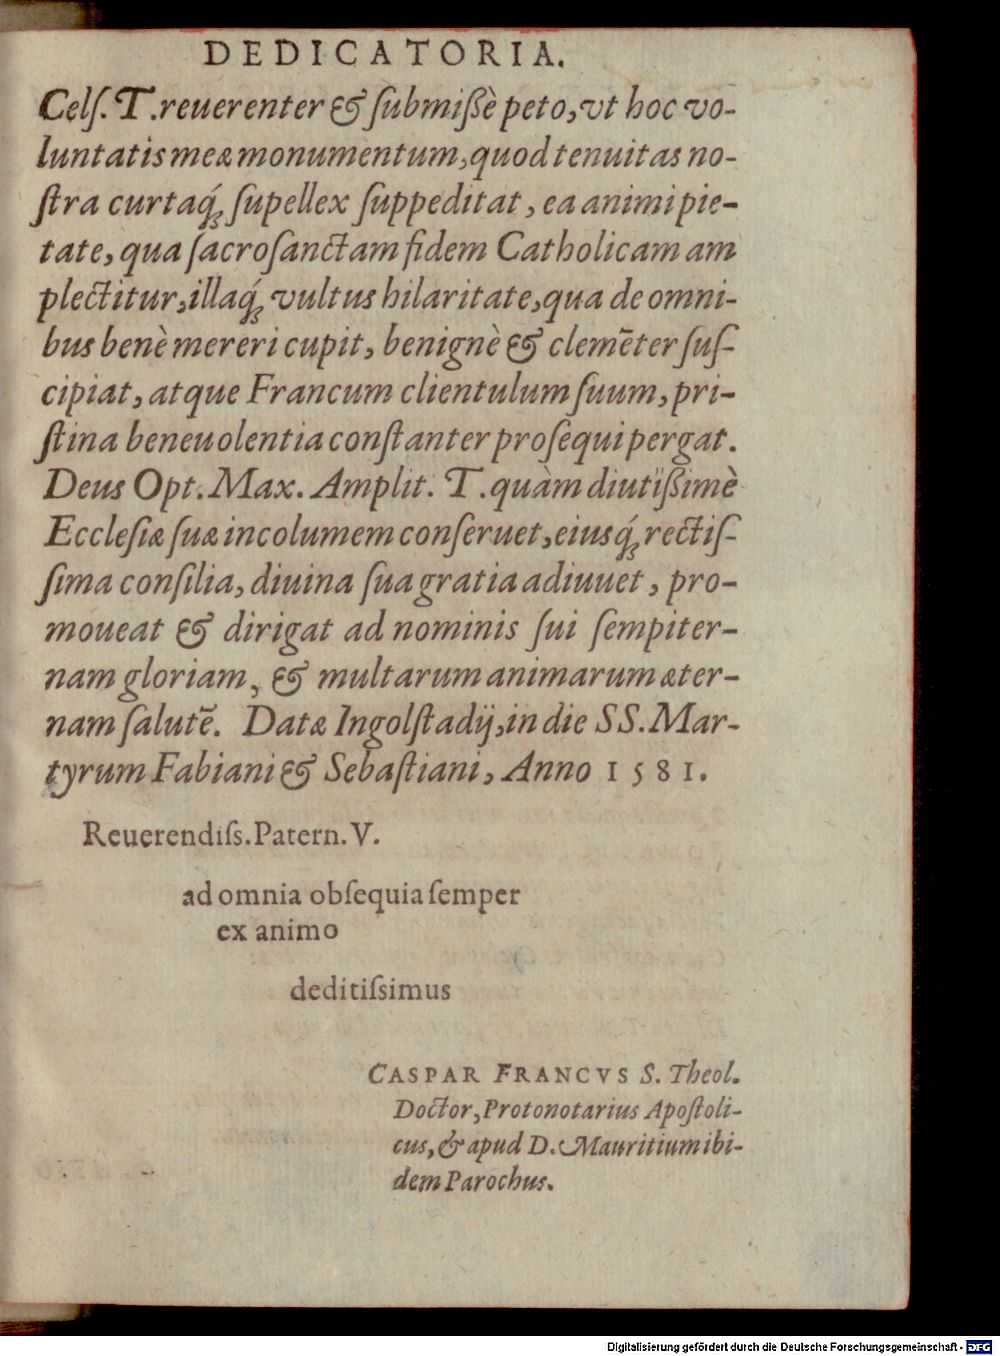 DEDICATORIA.
Celſ. T. reuerenter & ſubmiſsè peto, vt hoc vo-
luntatis meæ monumentum, quod tenuitas no-
ſtra curtaq́ꝫ ſupellex ſuppeditat, ea animi pie-
tate, qua ſacroſanctam fidem Catholicam am
plectitur, illaq́ꝫ vultus hilaritate, qua de omni-
bus benè mereri cupit, benignè & clemẽter ſuſ-
cipiat, atque Francum clientulum ſuum, pri-
ſtina beneuolentia conſtanter proſequi pergat.
Deus Opt. Max. Amplit. T. quàm diutiſsimè
Eccleſiæ ſuæ incolumem conſeruet, eiusq́ꝫ rectiſ-
ſima conſilia, diuina ſua gratia adiuuet, pro-
moueat & dirigat ad nominis ſui ſempiter-
nam gloriam, & multarum animarum æter-
nam ſalutẽ. Datæ Ingolſtadij, in die SS. Mar-
tyrum Fabiani & Sebaſtiani, Anno 1581.
Reuerendiſs. Patern. V.
ad omnia obſequia ſemper
ex animo
deditiſsimus
CASPAR FRANCVS S. Theol.
Doctor, Protonotarius Apoſtoli-
cus, & apud D. Mauritium ibi-
dem Parochus.
Digitalisierung gefördert durch die Deutsche Forschungsgemeinschaft - DFG